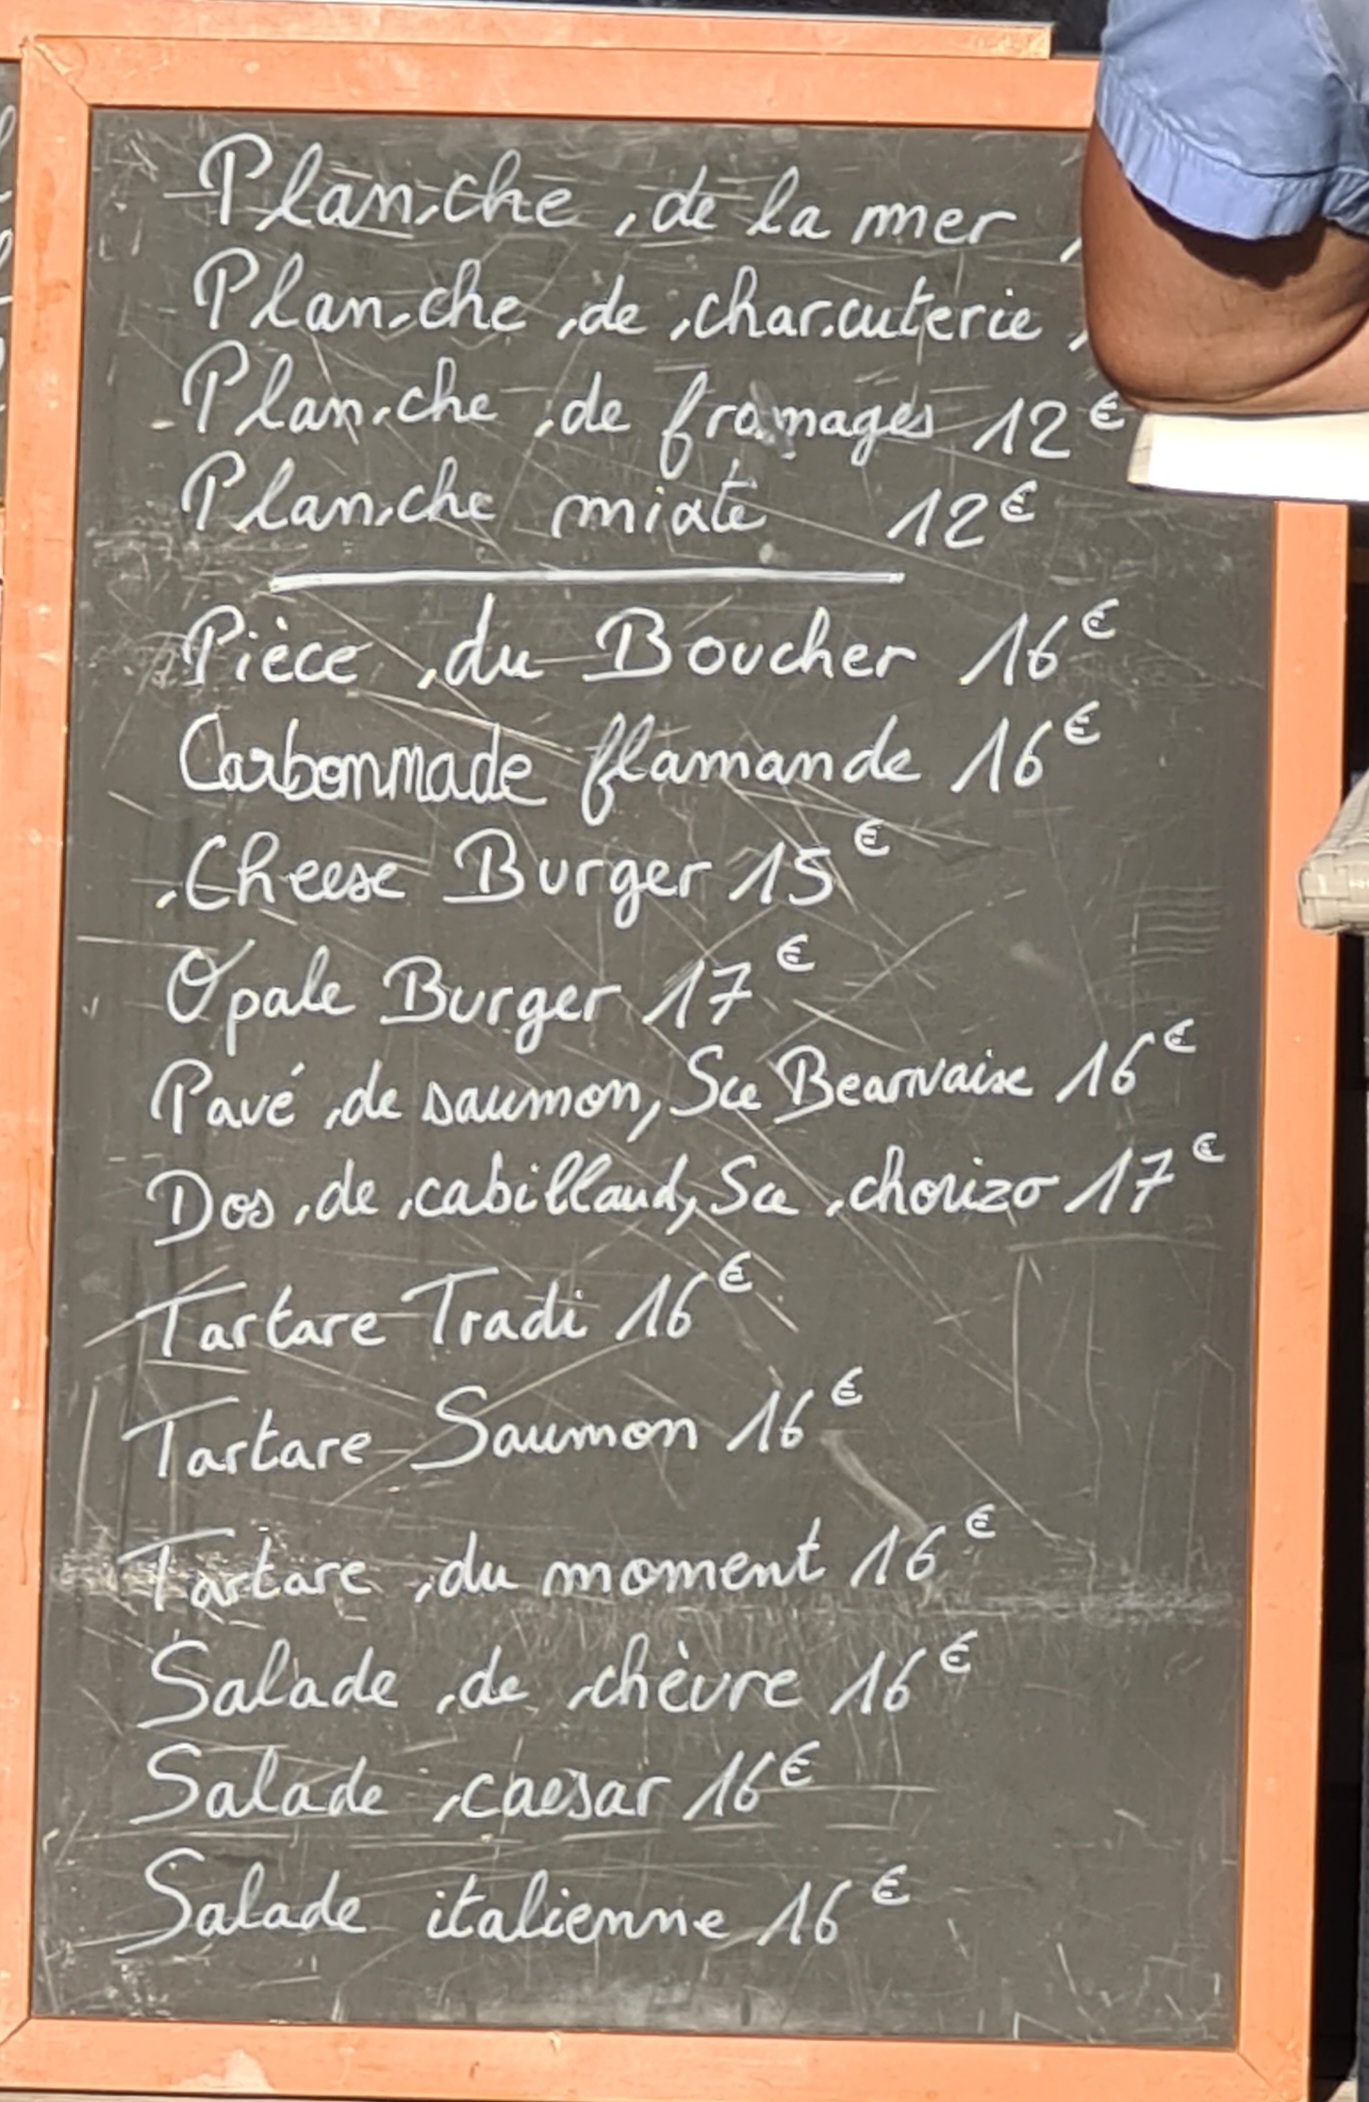 Planche de la mer
Planche de charcuterie
Planche de fromages 12€
Planche mixte 12€
Pièce du Boucher 16€
Carbonnmade flamande 16€
Cheese Burger 15€
Opale Burger 17€
Pavé de saumon, Sce Bearnaise 16€
Dos de cabillaud, Sce chorizo 17€
Tartare Tradi 16€
Tartare Saumon 16€
Tartare du moment 16€
Salade de chèvre 16€
Salade caesar 16€
Salade italienne 16€